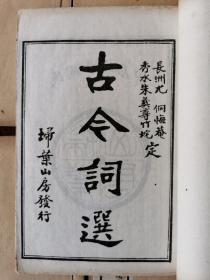 長洲尤　侗悔菴
秀水朱彝尊竹垞
定
古今詞選
埽葉山房發行